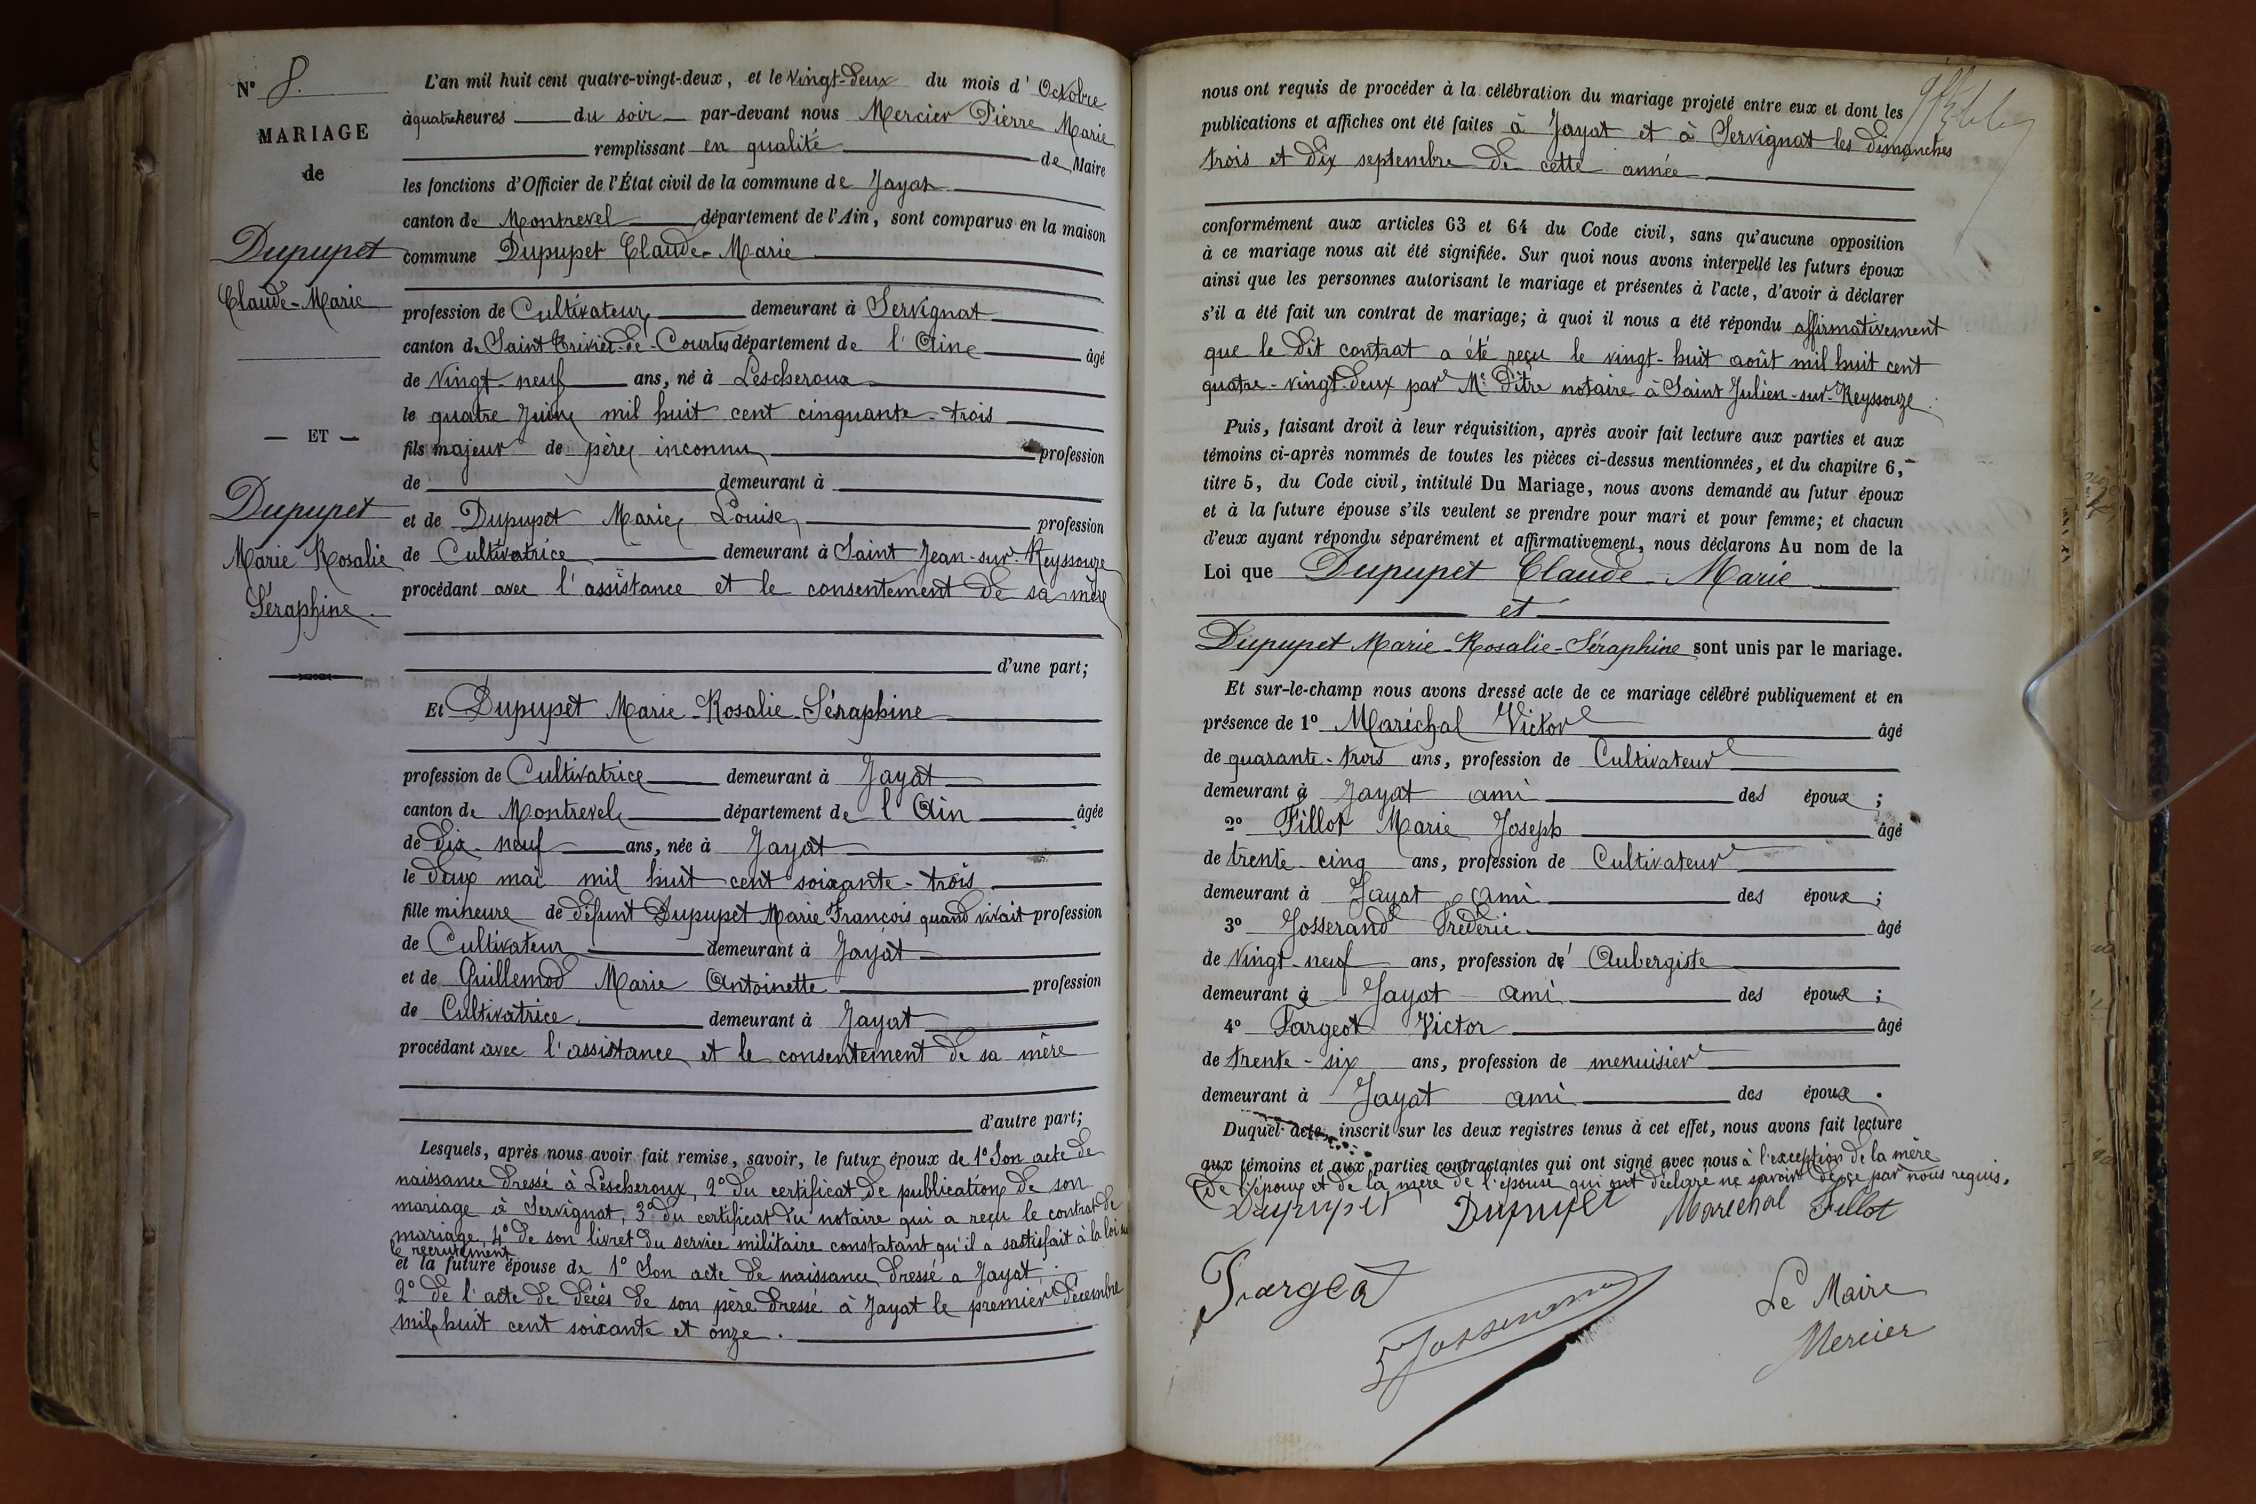 N° 8.
MARIAGE
de
Dupupet
Claude-Marie
— ET —
Dupupet
Marie Rosalie
Séraphine
L'an mil huit cent quatre-vingt-deux, et le vingt-deux du mois d'Octobre
à quatre heures du soir par-devant nous Mercier Pierre Marie
remplissant en qualité de Maire
les fonctions d'Officier de l'État civil de la commune de Jayat
canton de Montrevel département de l'Ain, sont comparus en la maison
commune Dupupet Claude-Marie
profession de Cultivateur demeurant à Servignat
canton de Saint Trivier-de-Courtes département de l'Ain âgé
de vingt-neuf ans, né à Lescheroux
le quatre Juin mil huit cent cinquante-trois
fils majeur de père inconnu profession
de demeurant à
et de Dupupet Marie Louise profession
de Cultivatrice demeurant à Saint Jean-sur-Reyssouze
procédant avec l'assistance et le consentement de sa mère
d'une part;
Et Dupupet Marie-Rosalie-Séraphine
profession de Cultivatrice demeurant à Jayat
canton de Montrevel département de l'Ain âgée
de dix-neuf ans, née à Jayat
le deux mai mil huit cent soixante-trois
fille mineure de défunt Dupupet Marie François quand vivait profession
de Cultivateur demeurant à Jayat
et de Guillemod Marie Antoinette profession
de Cultivatrice demeurant à Jayat
procédant avec l'assistance et le consentement de sa mère
d'autre part;
Lesquels, après nous avoir fait remise, savoir, le futur époux de 1° Son acte de
naissance dressé à Lescheroux, 2° du certificat de publication de son
mariage à Servignat, 3° du certificat du notaire qui a reçu le contrat de
mariage, 4° de son livret du service militaire constatant qu'il a sastisfait à la loi sur
le recrutement
et la future épouse de 1° Son acte de naissance dressé a Jayat
2° de l'acte de décès de son père dressé à Jayat le premier décembre
mil huit cent soixante et onze.
nous ont requis de procéder à la célébration du mariage projeté entre eux et dont les
publications et affiches ont été faites à Jayat et à Servignat les dimanches
trois et dix septembre de cette année
conformément aux articles 63 et 64 du Code civil, sans qu'aucune opposition
à ce mariage nous ait été signifiée. Sur quoi nous avons interpellé les futurs époux
ainsi que les personnes autorisant le mariage et présentes à l'acte, d'avoir à déclarer
s'il a été fait un contrat de mariage; à quoi il nous a été répondu affirmativement
que le dit contrat a été reçu le vingt-huit août mil huit cent
quatre-vingt-deux par Me Dître notaire à Saint Julien-sur-Reyssouze.
Puis, faisant droit à leur réquisition, après avoir fait lecture aux parties et aux
témoins ci-après nommés de toutes les pièces ci-dessus mentionnées, et du chapitre 6,
titre 5, du Code civil, intitulé Du Mariage, nous avons demandé au futur époux
et à la future épouse s'ils veulent se prendre pour mari et pour femme; et chacun
d'eux ayant répondu séparément et affirmativement, nous déclarons Au nom de la
Loi que Dupupet Claude-Marie
et
Dupupet Marie-Rosalie-Séraphine sont unis par le mariage.
Et sur-le-champ nous avons dressé acte de ce mariage célébré publiquement et en
présence de 1° Maréchal Victor âgé
de quarante-trois ans, profession de Cultivateur
demeurant à Jayat ami des époux;
2° Fillot Marie Joseph âgé
de trente cinq ans, profession de Cultivateur
demeurant à Jayat ami des époux;
3° Josserand Fréderic âgé
de vingt-neuf ans, profession de Aubergiste
demeurant à Jayat ami des époux;
4° Fargeot Victor âgé
de trente-six ans, profession de menuisier
demeurant à Jayat ami des époux.
Duquel acte, inscrit sur les deux registres tenus à cet effet, nous avons fait lecture
aux témoins et aux parties contractantes qui ont signé avec nous à l'exception de la mère
de l'époux et de la mère de l'épouse qui ont déclaré ne savoir de ce par nous requis.
Dupupet Dupupet Marechal Fillot
Fargeot
Josserand
Le Maire
Mercier